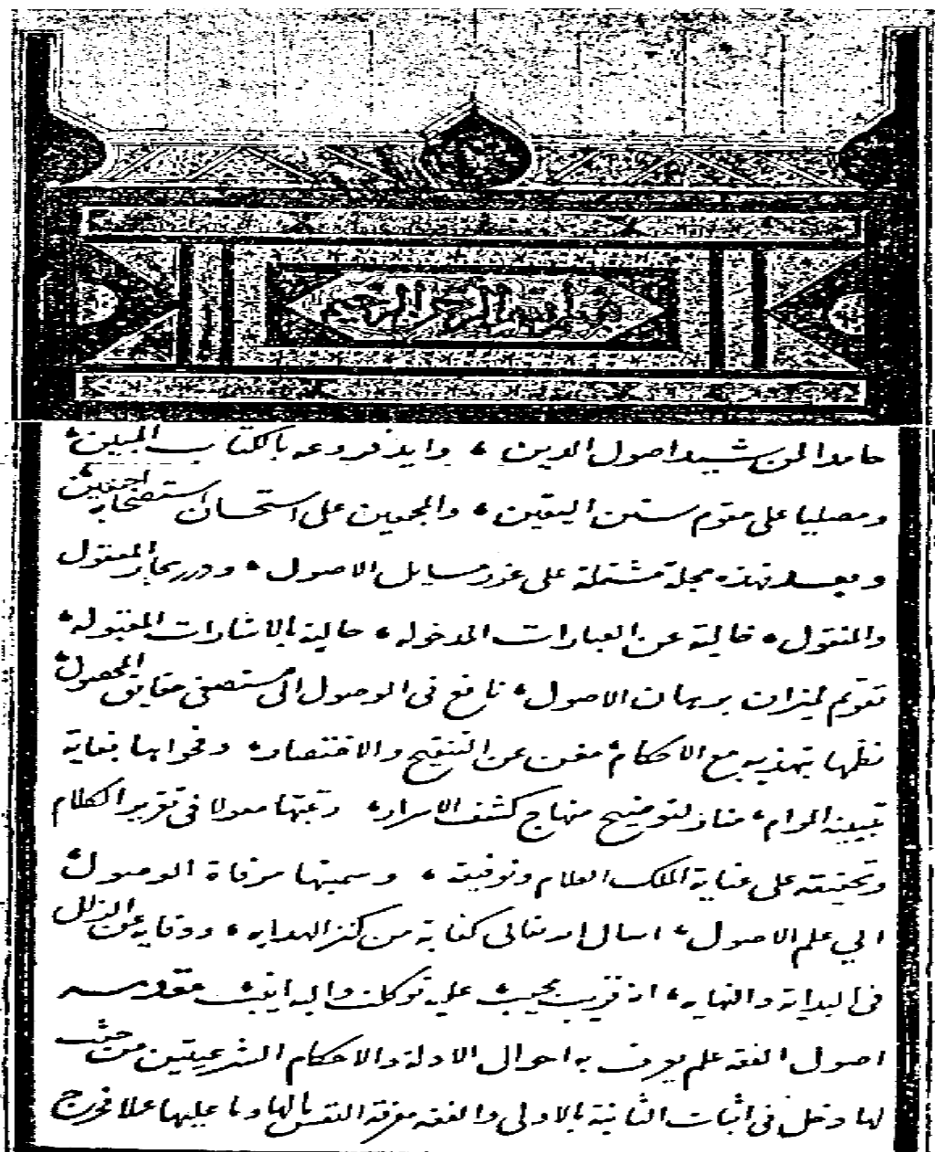 بسم الله الرحمن الرحيم
حامدا لمن شيد اصول الدين ، وايد فروعه بالكتاب المبين ،
ومصليا على مقوم سنن اليقين ، والمجمعين على استحسان استصحابه اجمعين
وبعد فهذه مجلة مشتملة على غرر مسايل الاصول ، ودرر بحار المعقول
والمنقول ، خالية عن العبارات المدخولة ، حالية بالاشارات المقبولة ،
تقويم لميزان برهان الاصول ، نافع فى الوصول الى مستصفى حقايق المحصول ،
نظمها بتهذيبه مع الاحكام ، مغن عن التنقيح والاختصار ، وفحواها بغاية
تبيينه المرام ، منار لتوضيح منهاج كشف الاسرار ، رتبتها معولا فى تقرير الكلام
وتحقيقه على عناية الملك العلام وتوفيقه ، وسميتها مرقاة الوصول ،
الي علم الاصول ، اسال الله تعالى كفاية من كنز الهداية ، ووقاية عن الزلل
فى البداية والنهاية ، انه قريب مجيب ، عليه توكلت واليه انيب ، مقدمه
اصول الفقه علم يعرف به احوال الادلة والاحكام الشرعيتين من حيث
لها دخل فى اثبات الثانية بالاولى والفقه معرفة النفس مالها وما عليها عملا فخرج